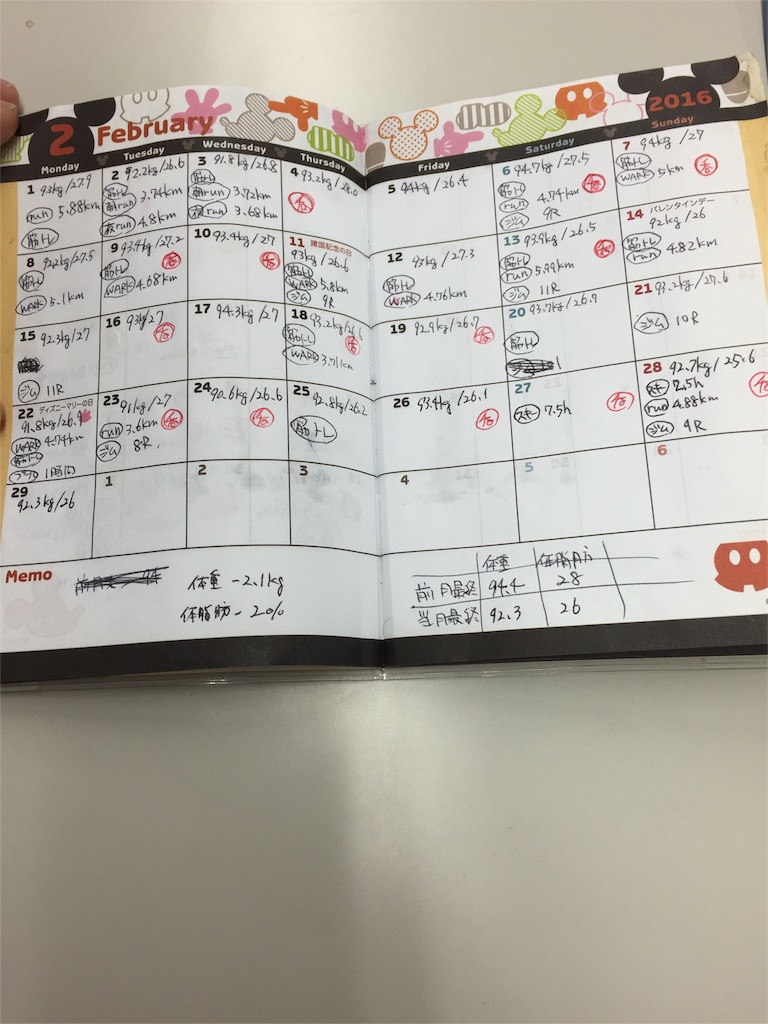 2 February
2016
Monday
Tuesday
Wednesday
Thursday
Friday
Saturday
Sunday
1 93kg/27.9
run 5.88km
筋トレ
2 92.2kg/26.6
筋トレ
朝run 3.74km
夜run 4.8km
3 91.8kg/26.8
筋トレ
朝run 3.72km
夜run 3.68km
4 93.2kg/28.0
5 94kg/26.4
6 94.7kg/27.5
筋トレ
run 4.74km
ジム 9R
7 94kg/27
筋トレ
WARK 5km
8 92.2kg/27.5
筋トレ
WARK 5.1km
9 93.4kg/27.2
筋トレ
WARK 4.68km
10 93.4kg/27
11 建国記念の日
93kg/26.6
筋トレ
WARK 5.8km
ジム 9R
12 93kg/27.3
筋トレ
WARK 4.76km
13 93.9kg/26.5
筋トレ
run 5.99km
ジム 11R
14 バレンタインデー
92kg/26
筋トレ
run 4.82km
15 92.3kg/27
ジム 11R
16 93kg/27
17 94.3kg/27
18 93.2kg/26.6
筋トレ
WARK 3.71km
19 92.9kg/26.7
20 93.7kg/26.7
筋トレ
21 93.2kg/27.6
ジム 10R
22 ディズニーマリーの日
91.8kg/26.9
WARK 4.74km
筋トレ
プール 1時間
23 91kg/27
run 3.6km
ジム 8R
24 90.6kg/26.6
25 92.8kg/26.2
筋トレ
26 93.4kg/26.1
27
スキー 7.5h
28 92.7kg/25.6
スキー 2.5h
run 4.88km
ジム 9R
29
92.3kg/26
1
2
3
4
5
6
Memo
体重 -2.1kg
体脂肪 - 2.0%
体重 体脂肪
前月最終 94.4 28
当月最終 92.3 26